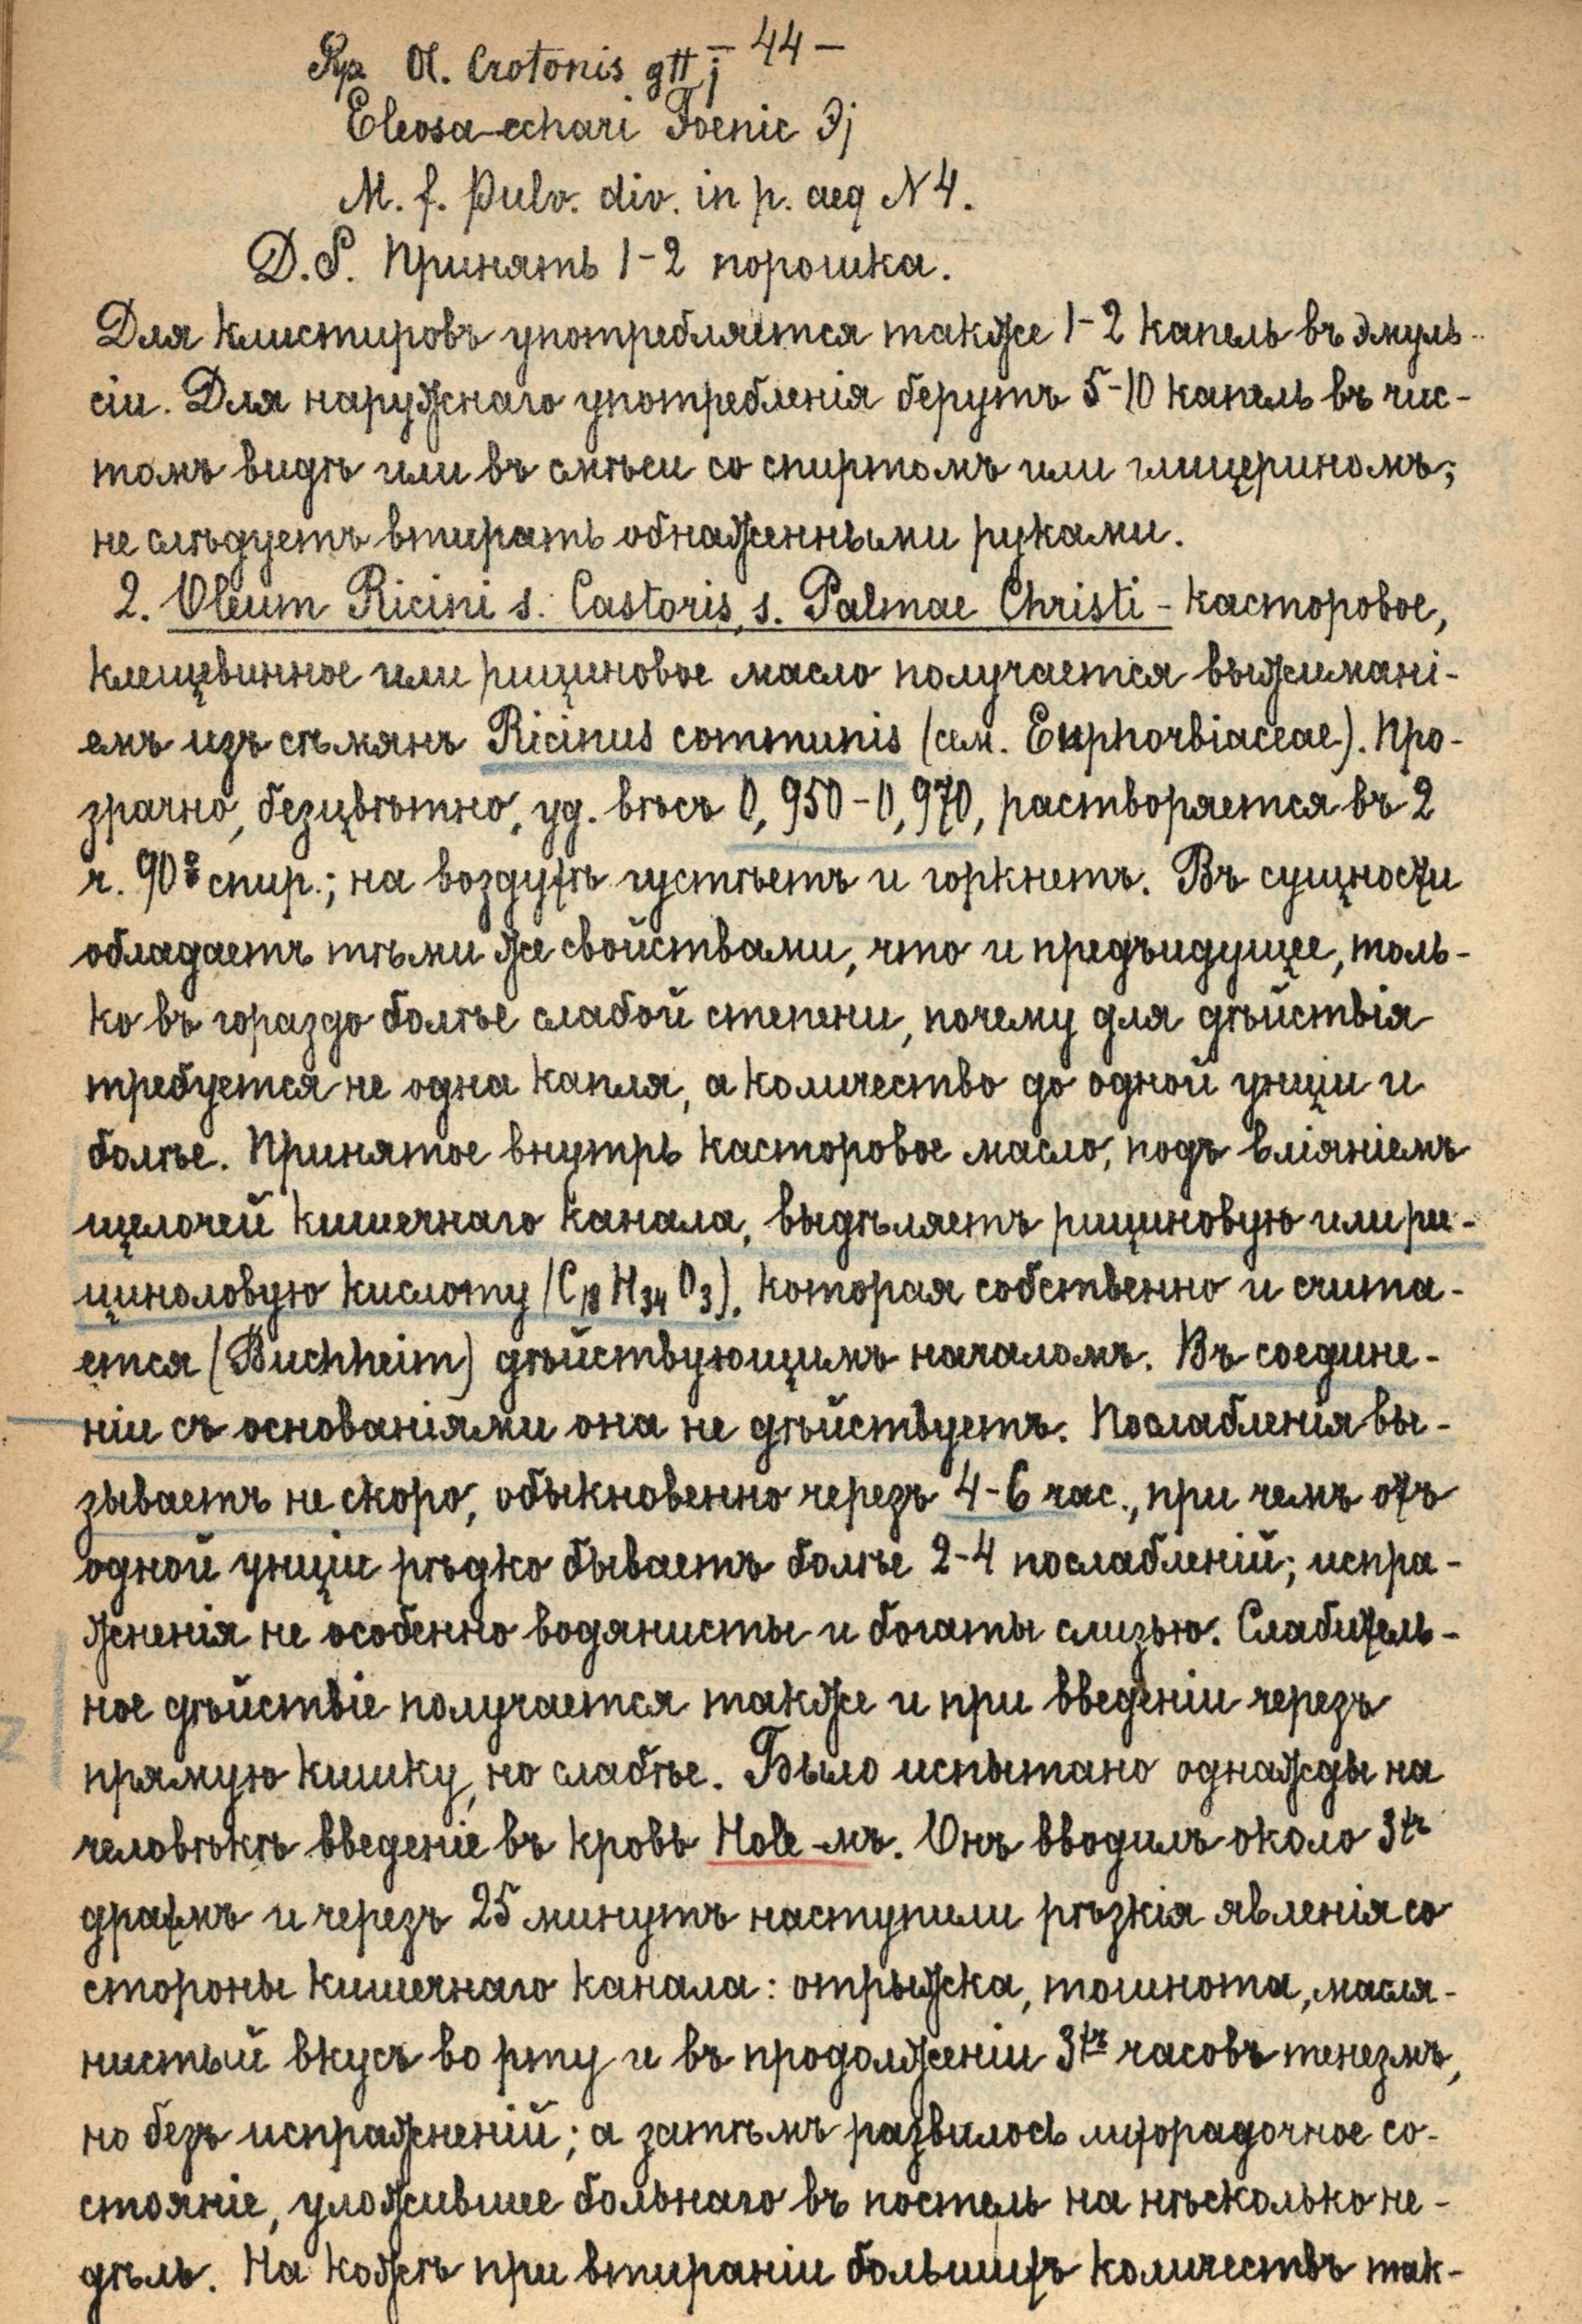 — 44 —
Rp. Ol. Crotonis gtt j
Eleosa-cchari Foenic ℈j
M. f. Pulv. div. in p. aeq N 4.
D. S. Принять 1-2 порошка.
Для клистировъ употребляется также 1-2 капель въ эмуль-
сіи. Для наружнаго употребленія берутъ 5-10 капель въ чис-
томъ видѣ или въ смѣси со спиртомъ или глицериномъ;
не слѣдуетъ втирать обнаженными руками.
2. Oleum Ricini s. Castoris, s. Palmae Christi - касторовое,
клещевинное или рициновое масло получается выжимані-
емъ изъ сѣмянъ Ricinus communis (сем. Euphorbiaceae). Про-
зрачно, безцвѣтно, уд. вѣсъ 0,950-0,970, растворяется въ 2
ч. 90% спир.; на воздухѣ густѣетъ и горкнетъ. Въ сущности
обладаетъ тѣми же свойствами, что и предъидущее, толь-
ко въ гораздо болѣе слабой степени, почему для дѣйствія
требуется не одна капля, а количество до одной унціи и
болѣе. Принятое внутрь касторовое масло, подъ вліяніемъ
щелочей кишечнаго канала, выдѣляетъ рициновую или ри-
циноловую кислоту (C₁₈H₃₄O₃), которая собственно и счита-
ется (Buchheim) дѣйствующимъ началомъ. Въ соедине-
ніи съ основаніями она не дѣйствуетъ. Послабленія вы-
зываетъ не скоро, обыкновенно черезъ 4-6 час., при чемъ отъ
одной унціи рѣдко бываетъ болѣе 2-4 послабленій; испра-
жненія не особенно водянисты и богаты слизью. Слабитель-
ное дѣйствіе получается также и при введеніи черезъ
прямую кишку, но слабѣе. Было испытано однажды на
человѣкѣ введеніе въ кровь Hole-мъ. Онъ вводилъ около 3хъ
драхмъ и черезъ 25 минутъ наступили рѣзкія явленія со
стороны кишечнаго канала: отрыжка, тошнота, масля-
нистый вкусъ во рту и въ продолженіи 3хъ часовъ тенезмъ,
но безъ испражненій; а затѣмъ развилось лихорадочное со-
стояніе, уложившее больнаго въ постель на нѣсколько не-
дѣль. На кожѣ при втираніи большихъ количествъ так-